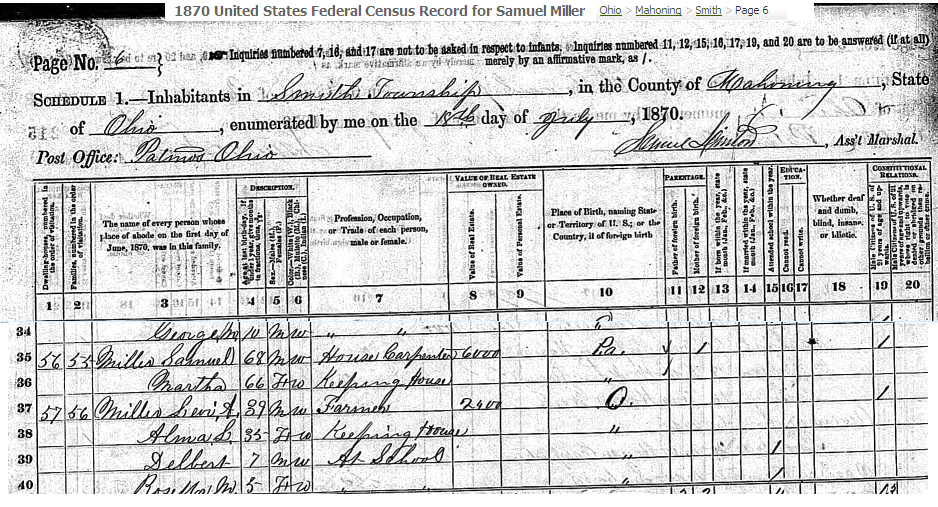 1870 United States Federal Census Record for Samuel Miller Ohio > Mahoning > Smith > Page 6
Page No. 6 } Inquiries numbered 7, 16, and 17 are not to be asked in respect to infants. Inquiries numbered 11, 12, 15, 16, 17, 19, and 20 are to be answered (if at all)
merely by an affirmative mark, as /.
SCHEDULE 1.—Inhabitants in Smith Township, in the County of Mahoning, State
of Ohio, enumerated by me on the 18th day of July, 1870.
Post Office: Patmos Ohio Samuel, Ass't Marshal.
DESCRIPTION. VALUE OF REAL ESTATE OWNED. PARENTAGE. EDUCATION. CONSTITUTIONAL RELATIONS.
Dwelling-houses, numbered in the order of visitation.
Families, numbered in the order of visitation.
The name of every person whose place of abode on the first day of June, 1870, was in this family.
Age at last birth-day.
Sex.—Males (M.), Females (F.)
Color.—White (W.), Black (B.), Mulatto (M.), Chinese (C.), Indian (I.)
Profession, Occupation, or Trade of each person, male or female.
Value of Real Estate.
Value of Personal Estate.
Place of Birth, naming State or Territory of U. S.; or the Country, if of foreign birth
Father of foreign birth.
Mother of foreign birth.
If born within the year, state month (Jan., Feb., &c.)
If married within the year, state month (Jan., Feb., &c.)
Attended school within the year.
Cannot read.
Cannot write.
Whether deaf and dumb, blind, insane, or idiotic.
Male Citizens of U. S. of 21 years of age and upwards.
1 2 3 4 5 6 7 8 9 10 11 12 13 14 15 16 17 18 19 20
34 George M. 10 M W " " " /
35 56 55 Miller Samuel 68 M W House Carpenter 6000 Pa. / / /
36 Martha 66 F W Keeping House " /
37 57 56 Miller Levi A. 39 M W Farmer 2400 O. /
38 Alma L. 35 F W Keeping House "
39 Delbert 7 M W At School " /
40 M. 5 F W " " " /